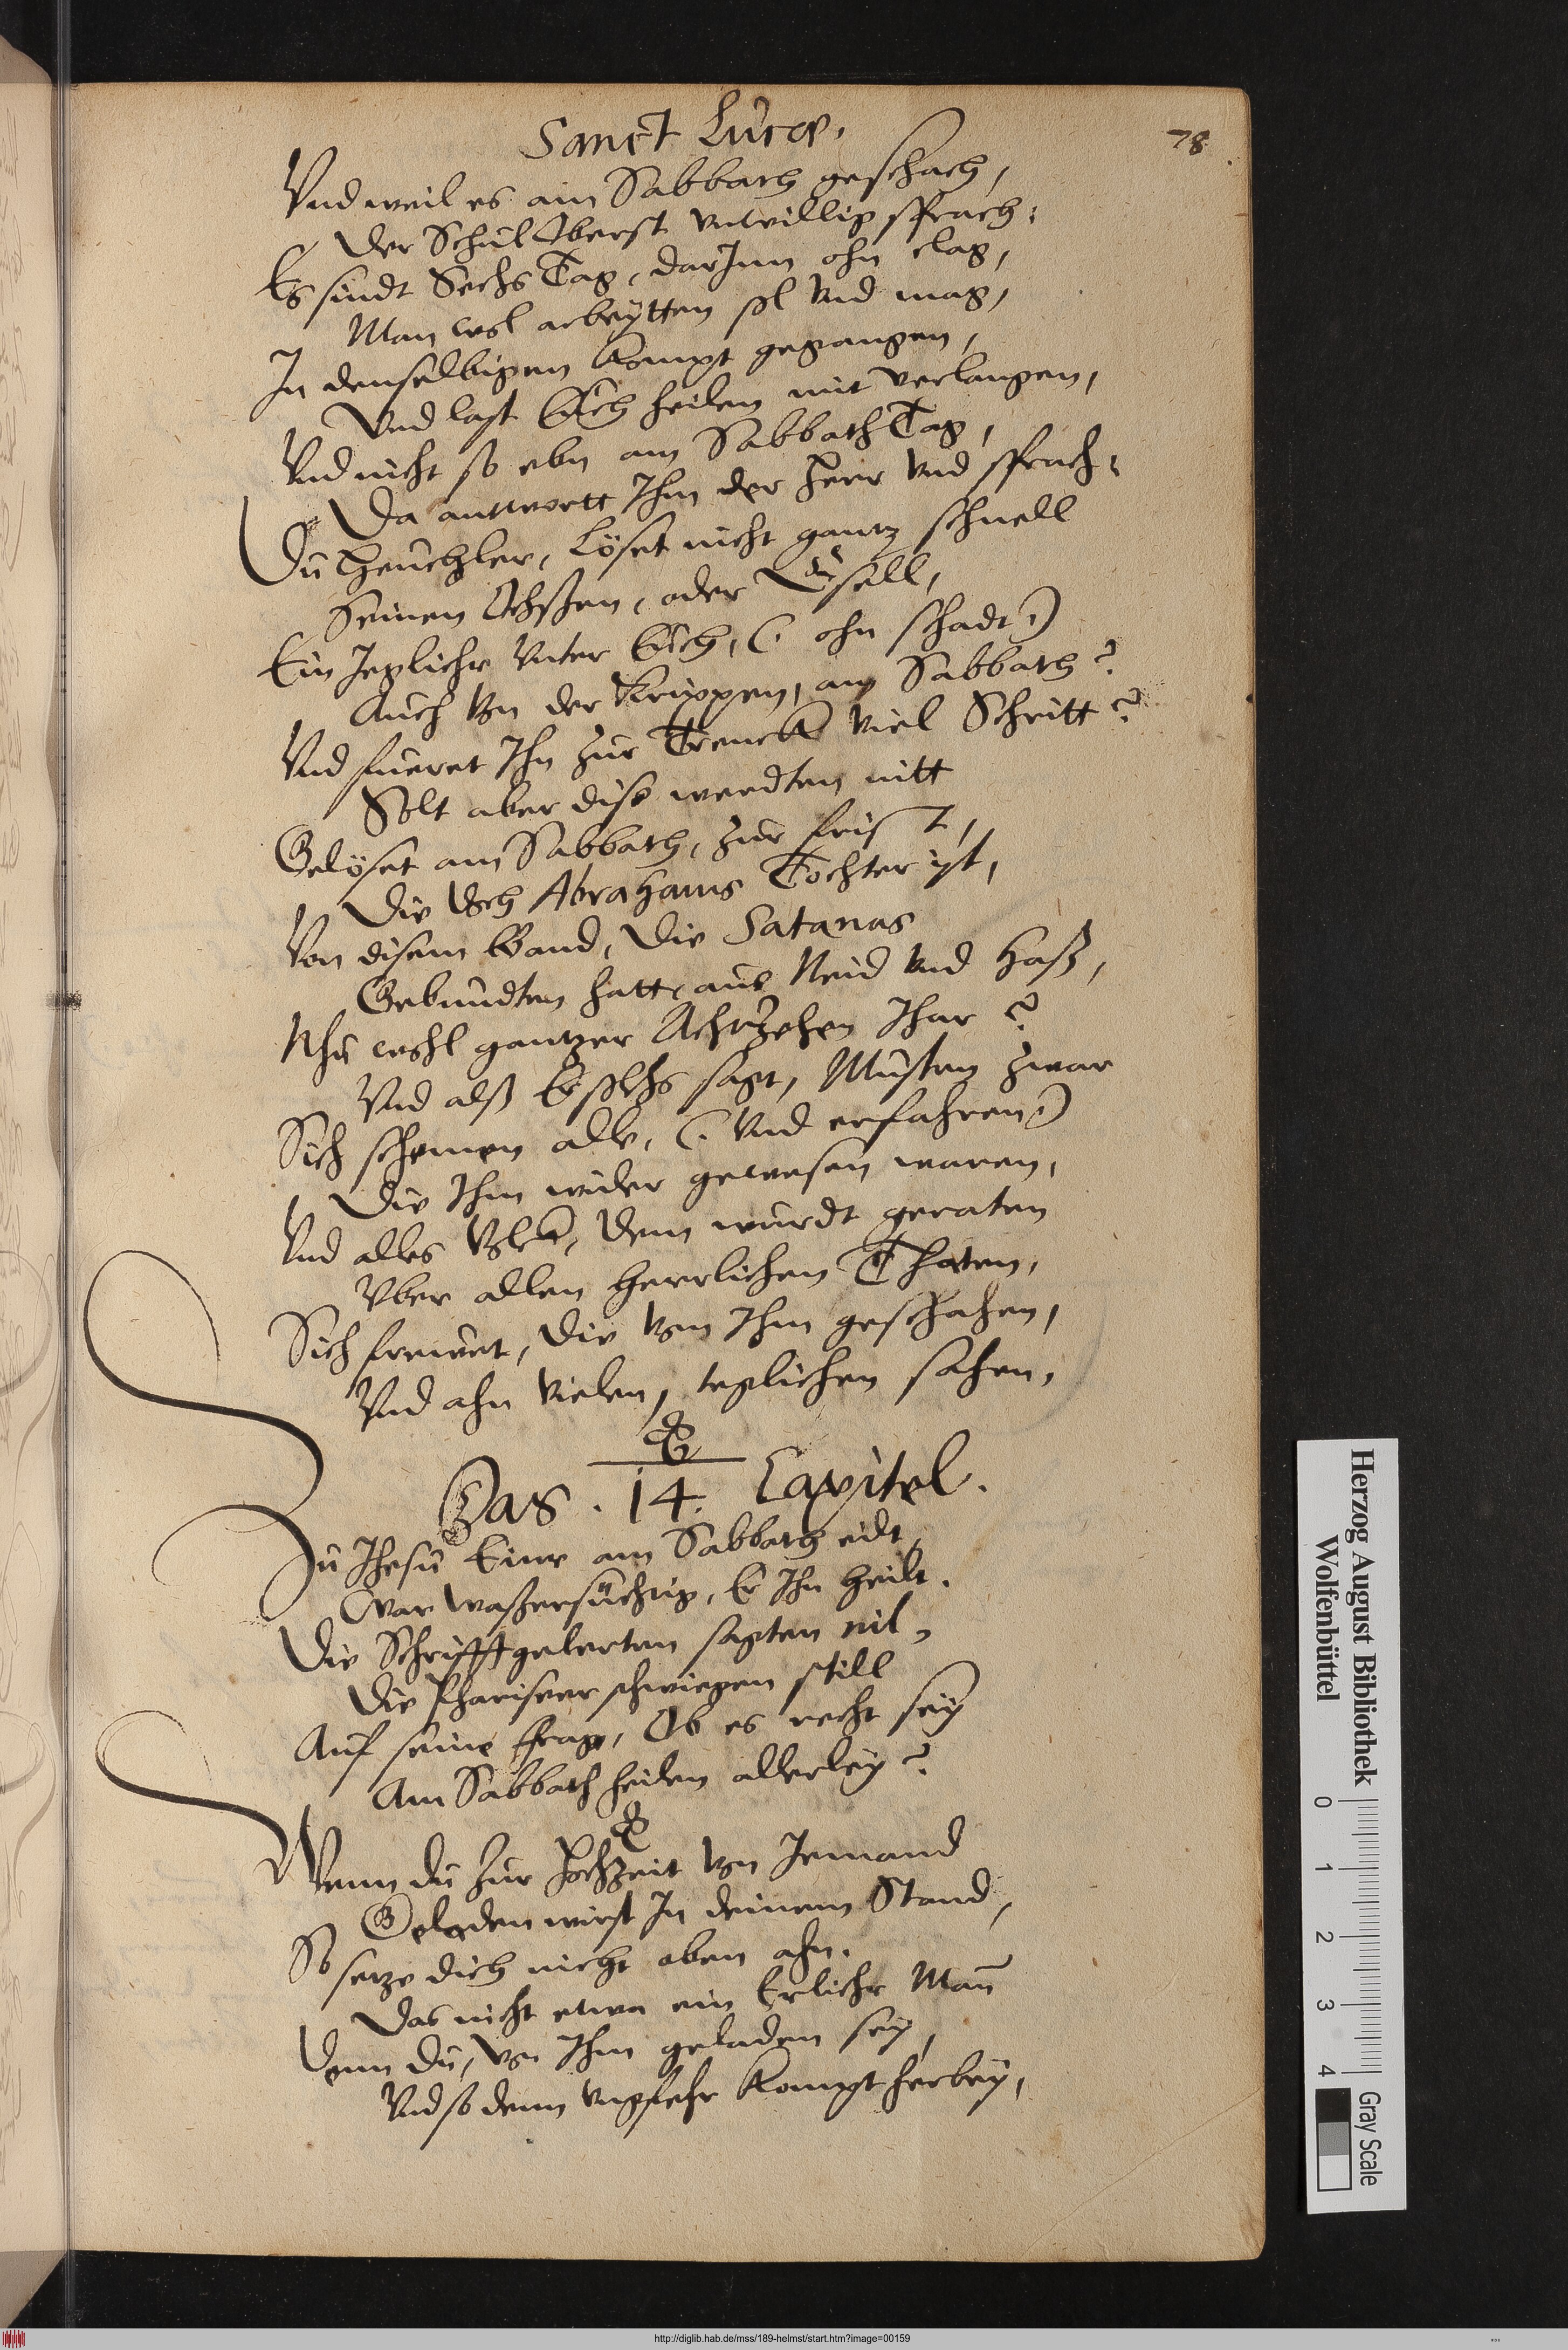 Sanct Lucæ.
78
Vnd weil es am Sabbath geschach,
Der Schul Oberst vnwillig sprach:
Es sindt Sechs Tag, darJnn ohn clag,
Man wol arbeÿtten sol Vnd mag,
Jn denselbigen kompt gegangen,
Vnd last Euch heilen mit verlangen,
Vnd nicht so eben am Sabbath Tag,
Da antwortt Jhm der Herr Vnd sprach:
Du Heuchler, Löset nicht gantz schnell
Seinen Ochssen, oder Esell,
Ein Jeglicher Vnter Euch, (: ohn schadt :)
Auch Von der Krippen, am Sabbath?
Vnd fueret Jhn zur Trenck Viel Schritt?
Solt aber dise werdten nitt
Gelöset am Sabbath, zur frist,
Die doch Abrahams Tochter ist,
Von disem Band, die Satanas
Gebundten hatt, aus Neid Vnd Haß,
Nhu wohl gantzer Achtzehen Jhar?
Vnd alß Er solchs sagt, Musten zwar
Sich schemen alle, (: Vnd erfahren :)
Die Jhm wider gewesen waren,
Vnd alles Volck, dem wurdt geraten
Vber allen Herrlichen Thaten,
Sich frewet, die Von Jhm geschahen,
Vnd ahn Vielen, teglichen sahen,
Das . 14. Capitel.
Zu Jhesu Einer am Sabbath eilt,
War Wassersüchtig, Er Jhn heilt.
Die Schrifftgelerten sagten nil,
Die Phariseer schwiegen still
Auf seine frag, Ob es recht seÿ
Am Sabbath heilen allerleÿ?
Wenn du zur Hochzeit Von Jemand
Geladen wirst Jn deinem Stand,
So setze dich nicht oben ahn.
Das nicht etwa ein Erlicher Man̄
Denn du, Von Jhm geladen seÿ,
Vnd so denn Vngfehr kompt herbeÿ,
Herzog August Bibliothek
Wolfenbüttel
0 1 2 3 4
Gray Scale
http://diglib.hab.de/mss/189-helmst/start.htm?image=00159